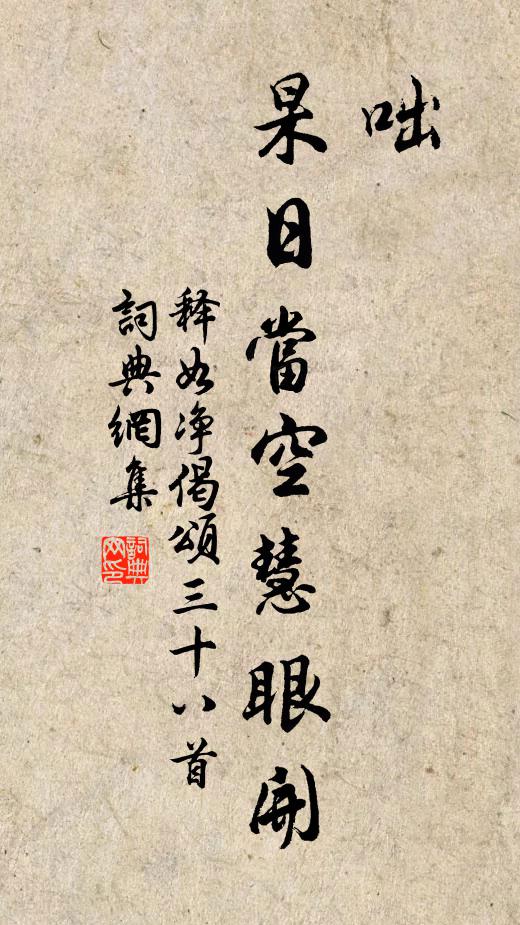 咄
杲日當空慧眼開
释如净偈頌三十八首
詞典網集
詞典网印